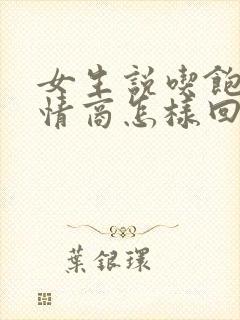 女生説喫飽
情商怎樣回
葉銀環